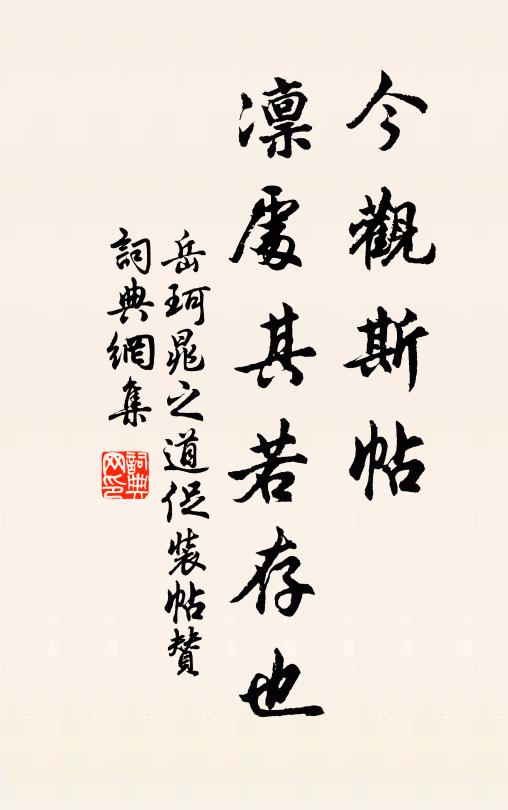 今觀斯帖
凛處其若存也
岳珂晁之道促裝帖贊
詞典網集
詞典網印